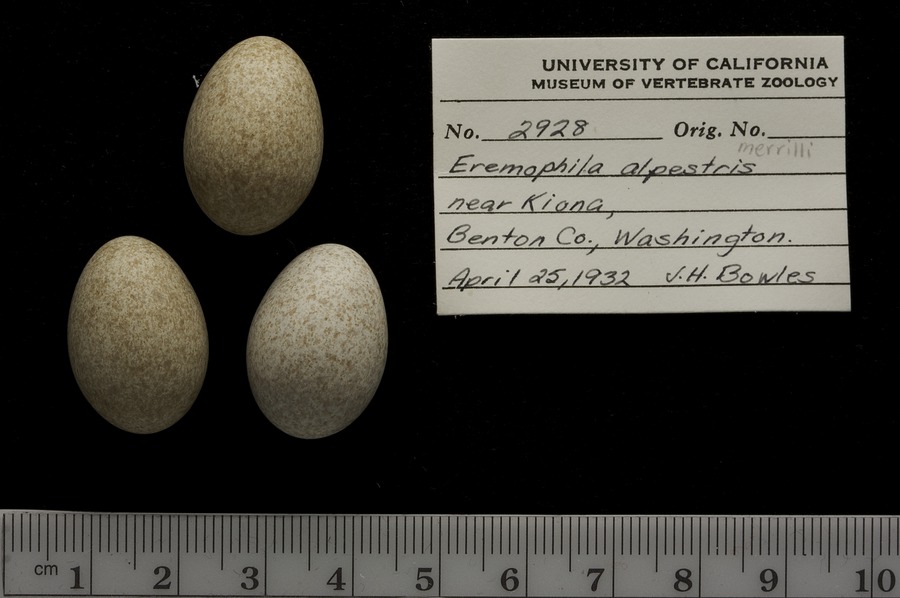 UNIVERSITY OF CALIFORNIA
MUSEUM OF VERTEBRATE ZOOLOGY
No. 2928 Orig. No.
merrilli
Eremophila alpestris
near Kiona,
Benton Co., Washington.
April 25, 1932 J.H. Bowles
cm 1 2 3 4 5 6 7 8 9 10